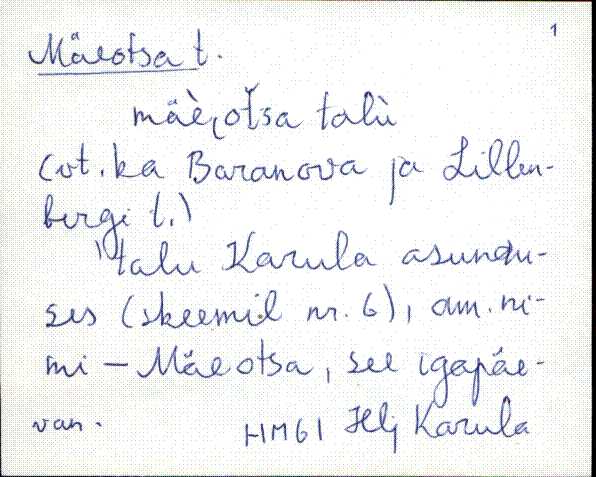 1
Mäeotsa t.
mäè, otsa talù
(vt. ka Baranova ja Lillen-
bergi t.)
'talu Karula asundu-
ses (skeemil nr. 6), am. ni-
mi – Mäeotsa, see igapäe-
van.
HM61 Hlj Karula